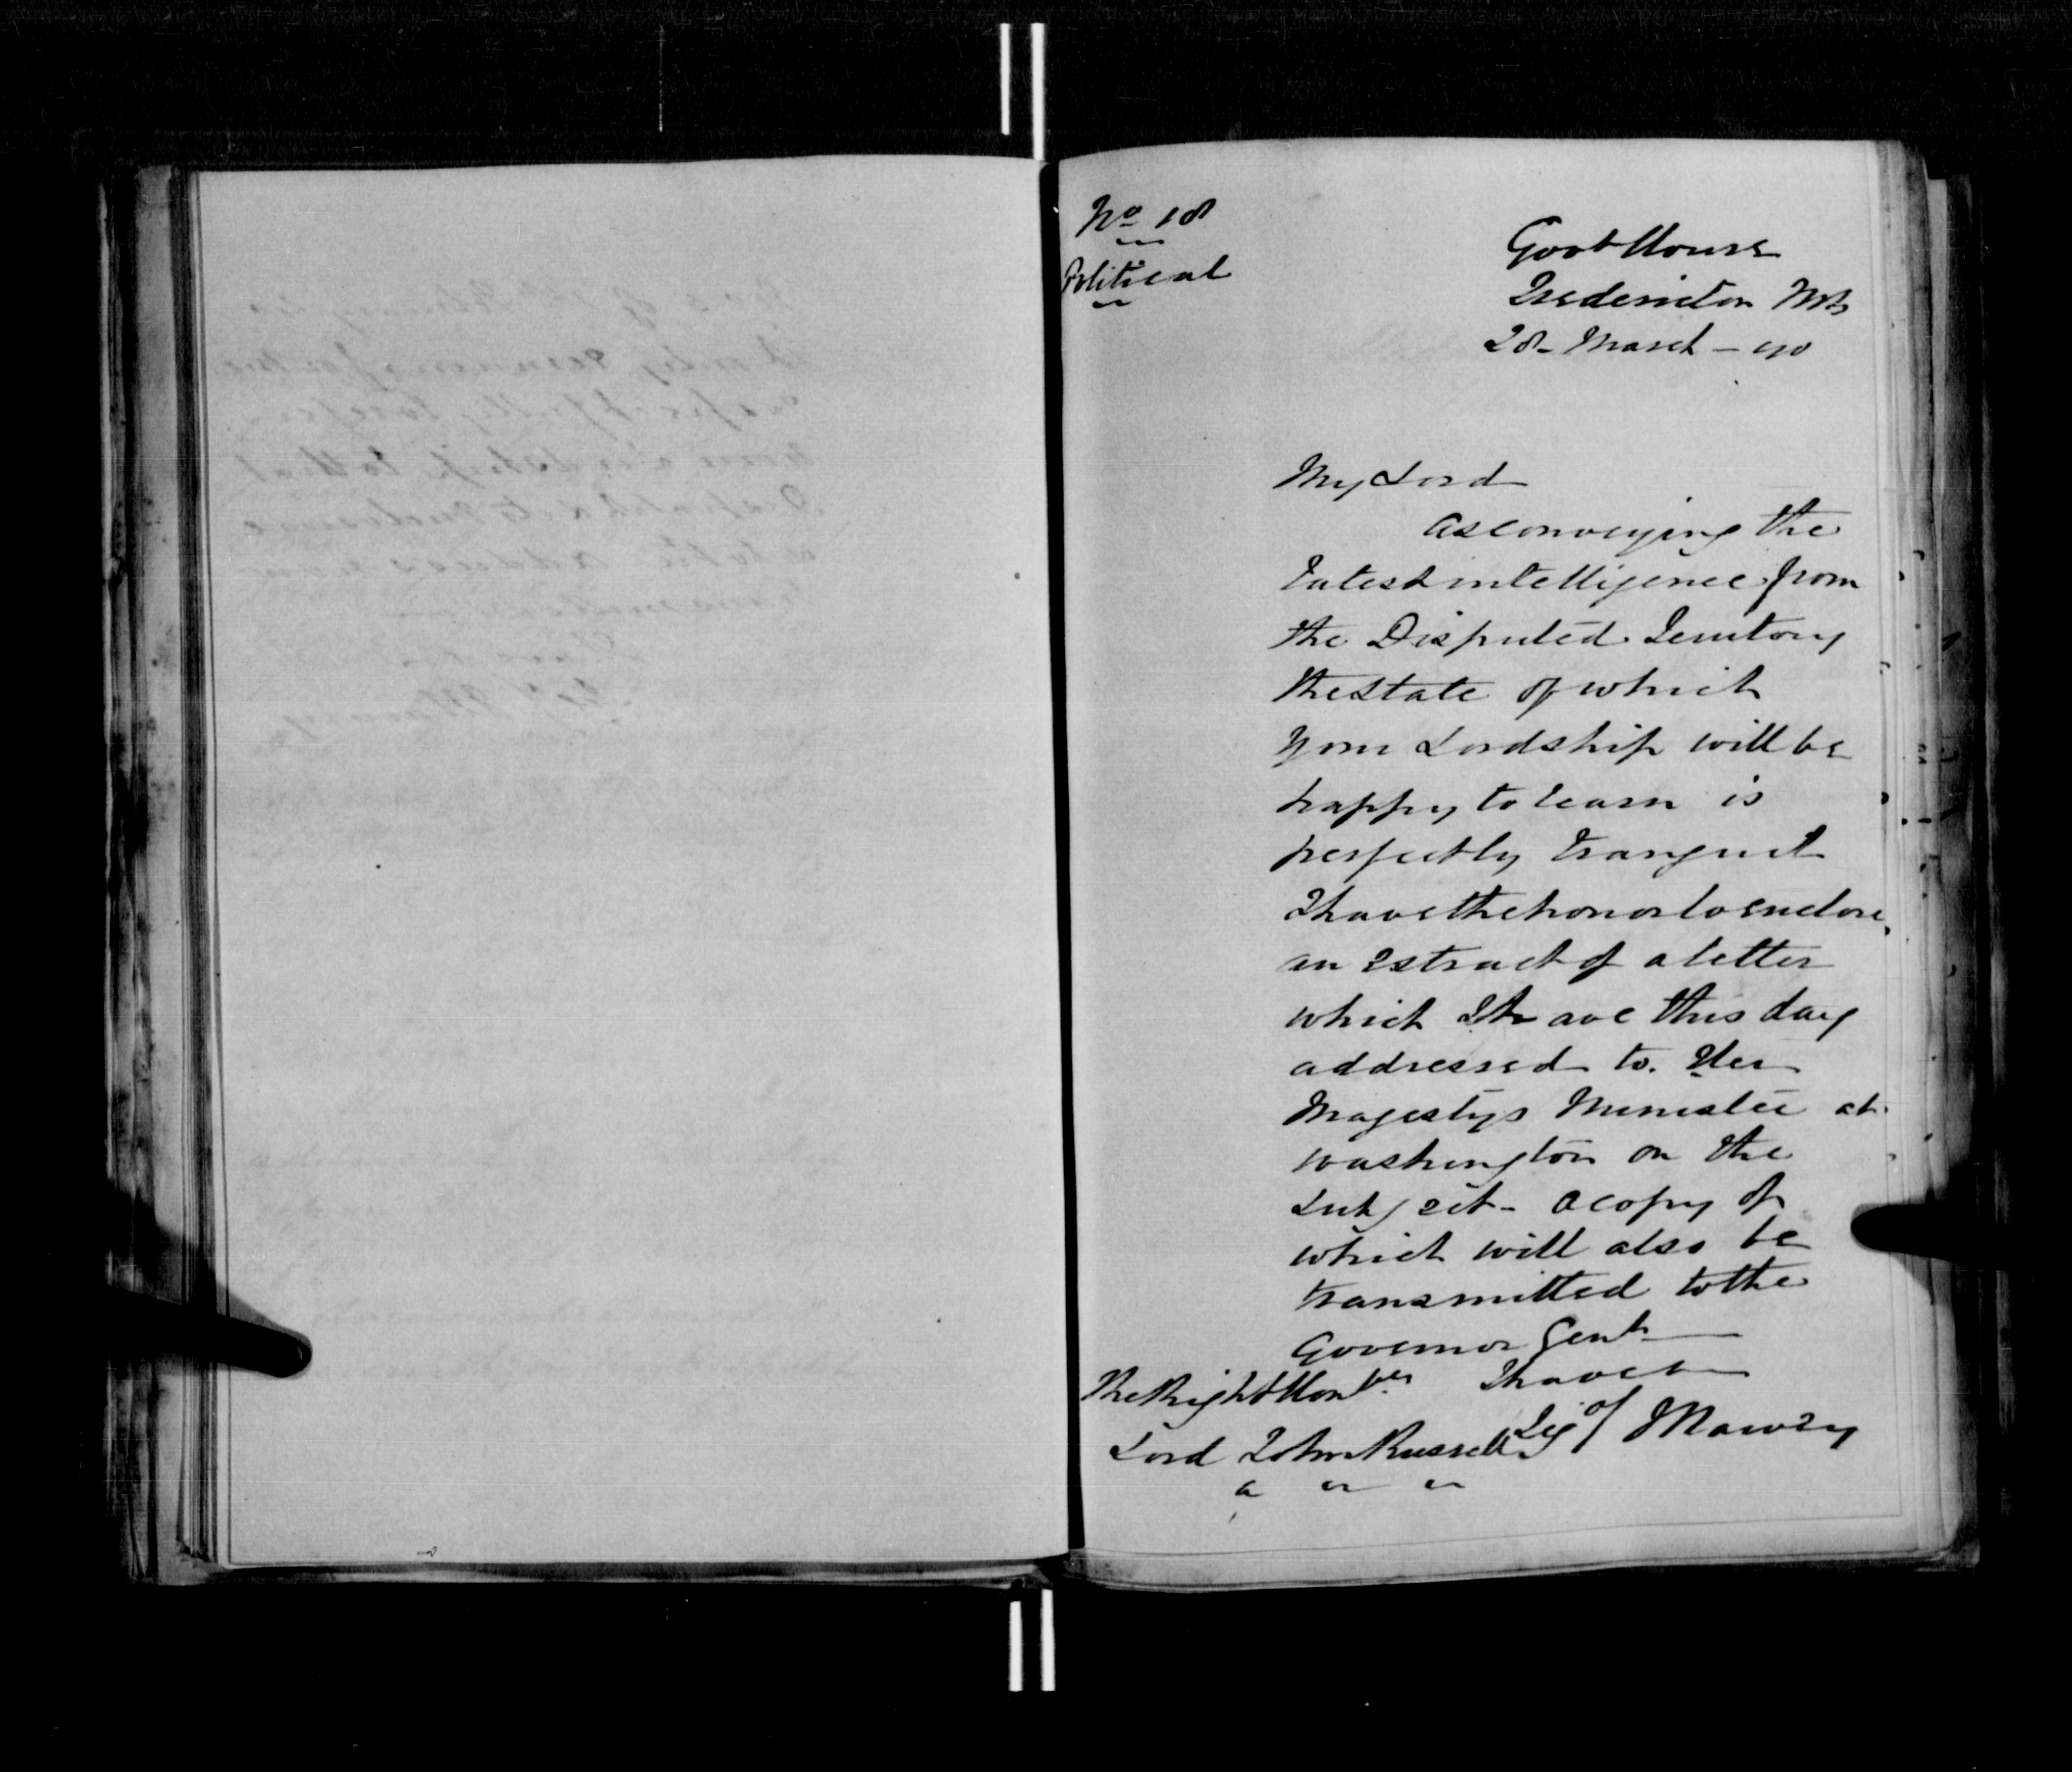 No 18
Political
Govt House
Fredericton NB
28 - March - 40
My Lord
As conveying the
latest intelligence from
the Disputed Territory
the State of which
your Lordship will be
happy to learn is
perfectly tranquil
I have the honor to enclose
an Extract of a letter
which I have this day
addressed to Her
Majestys Minister at
Washington on the
Subject - a copy of
which will also be
transmitted to the
Governor Genl
I have &
The Right Honble
Lord John Russell
Sigd J Harvey